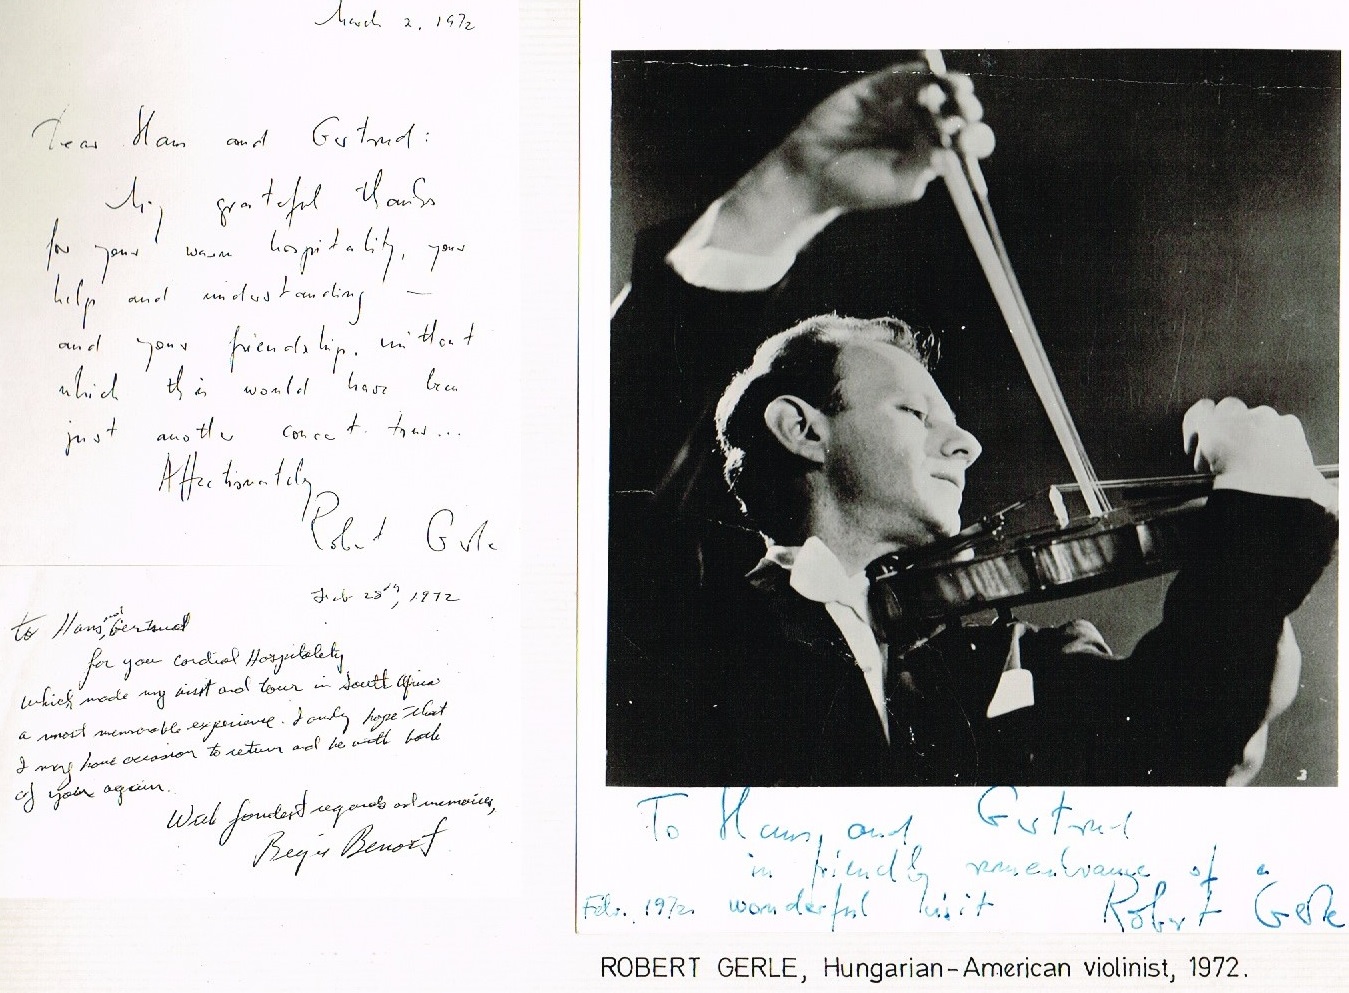 March 2, 1972
Dear Hans and Gertrud:
My grateful thanks
for your warm hospitality, your
help and understanding —
and your friendship, without
which this would have been
just another concert tour...
Affectionately
Robert Gerle
Feb 28th, 1972
To Hans, and Gertrud
for your cordial Hospitality
which made my visit and tour in South Africa
a most memorable experience. I only hope that
I may have occasion to return and be with both
of you again.
With fondest regards and memories,
Regis Benoit
3
To Hans, and Gertrud
in friendly remembrance of a
Febr. 1972 wonderful visit Robert Gerle
ROBERT GERLE, Hungarian-American violinist, 1972.